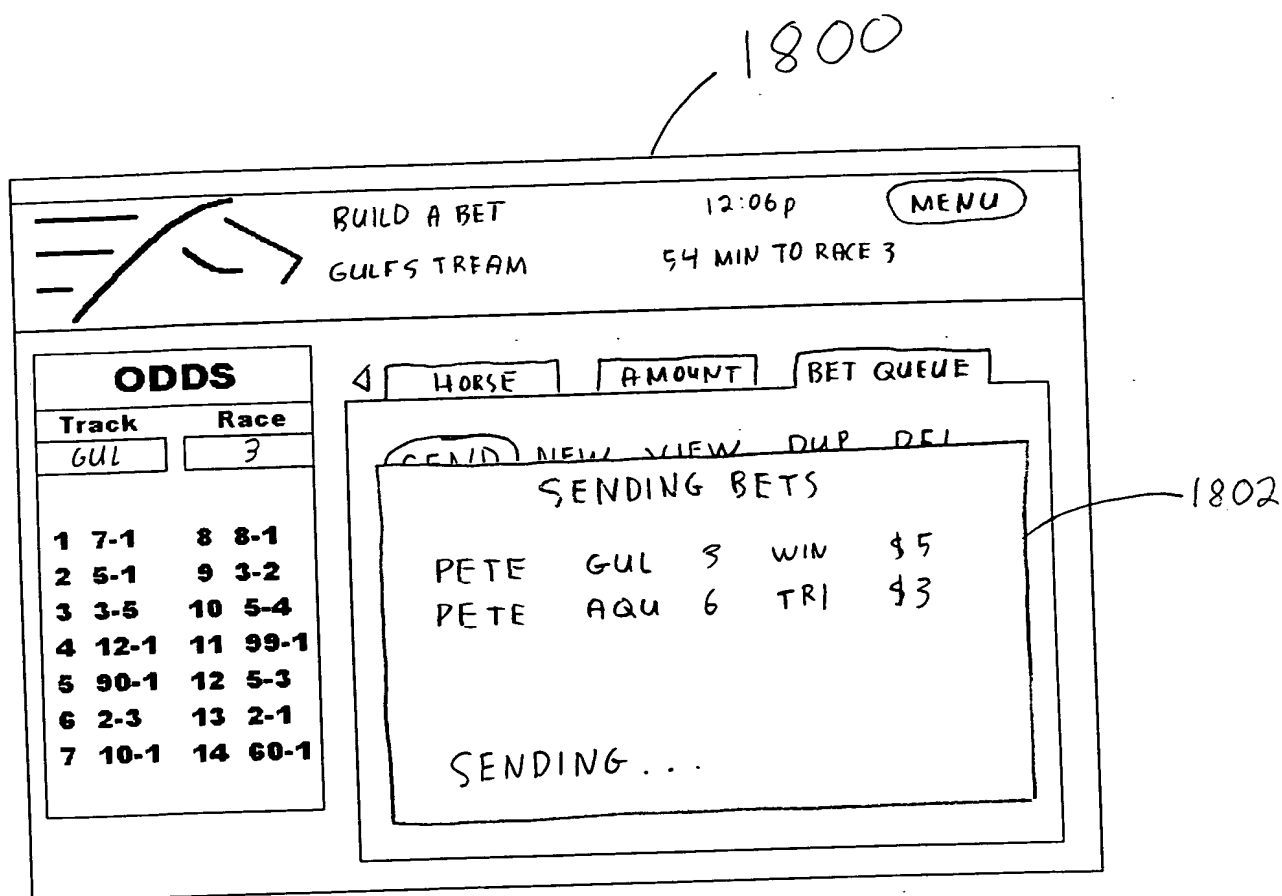 1800
BUILD A BET 12:06p MENU
GULFSTREAM 54 MIN TO RACE 3
ODDS
Track Race
GUL 3
1 7-1 8 8-1
2 5-1 9 3-2
3 3-5 10 5-4
4 12-1 11 99-1
5 90-1 12 5-3
6 2-3 13 2-1
7 10-1 14 60-1
HORSE AMOUNT BET QUEUE
SEND NEW VIEW DUP DEL
SENDING BETS
PETE GUL 3 WIN $5
PETE AQU 6 TRI $3
SENDING...
1802